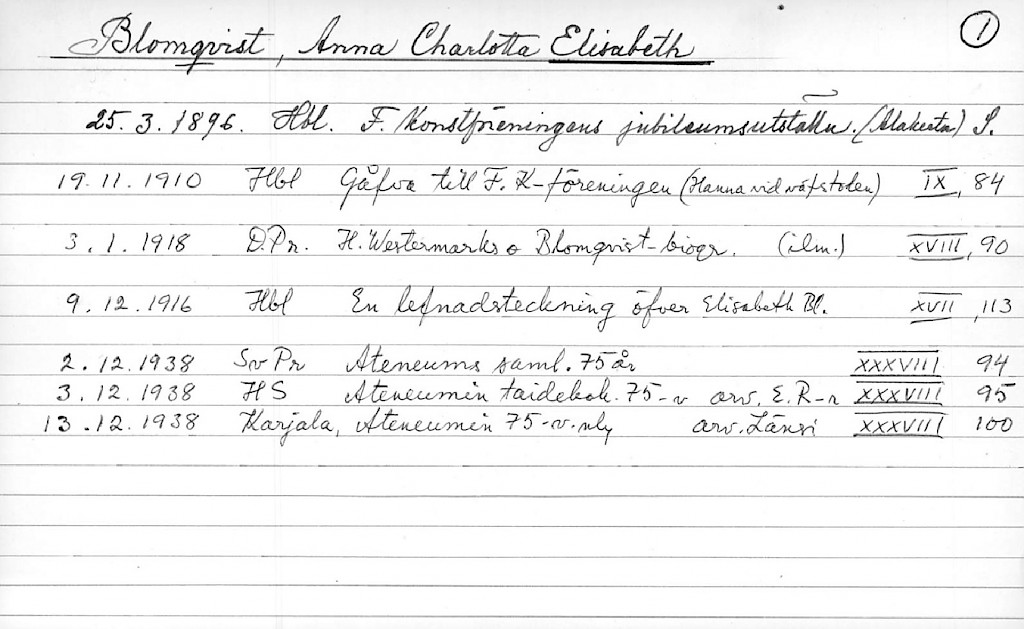 Blomqvist, Anna Charlotta Elisabeth 1
25.3.1896. Hbl. F. Konstföreningens jubileumsutställn. S.
19.11.1910 Hbl Gåfva till F. K-föreningen (Hanna vid väfstolen) IX, 84
3.1.1918 D.Pr. H. Westermarks o Blomqvist-biogr. (ilm.) XVIII, 90
9.12.1916 Hbl En lefnadsteckning öfver Elisabeth Bl. XVII, 113
2.12.1938 Sv Pr Ateneums saml. 75 år XXXVIII 94
3.12.1938 HS Ateneumin taidekok. 75-v arv. E. R-n XXXVIII 95
13.12.1938 Karjala, Ateneumin 75-v. nly arv. Länsi XXXVIII 100